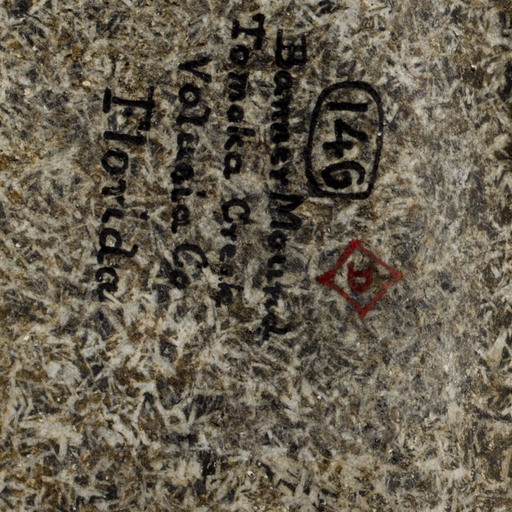 146
D
Banner Mound
Tomoka Creek
Volusia Co
Florida